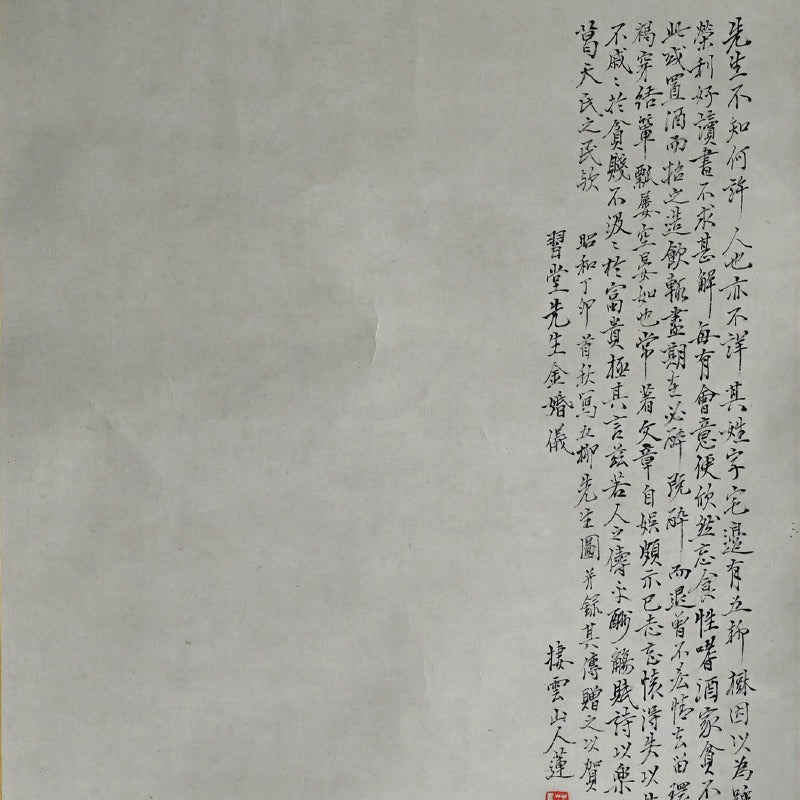 先生不知何許人也亦不詳其姓字宅邊有五柳樹因以為號
榮利好讀書不求甚解每有會意便欣然忘食性嗜酒家貧不
此或置酒而招之造飲輒盡期在必醉既醉而退曾不吝情去留環
褐穿結簞瓢屢空晏如也常著文章自娛頗示己志忘懷得失以
不戚〻於貧賤不汲〻於富貴極其言茲若人之儔乎酬觴賦詩以樂
葛天民之民歟
昭和丁卯首秋寫五柳先生圖并錄其傳贈之以賀
習堂先生金婚儀
棲雲山人蓮